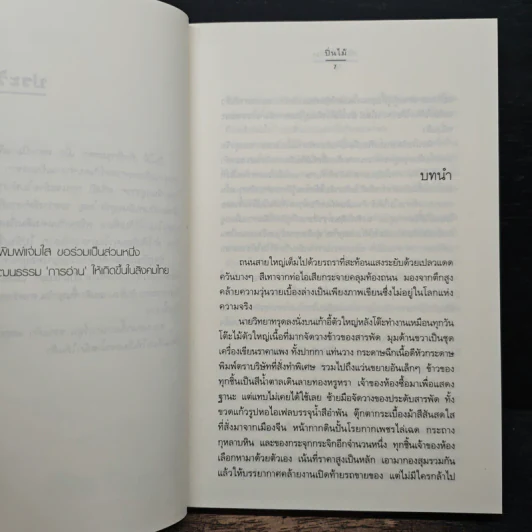 พิมพ์แจ่มใส ขอร่วมเป็นส่วนหนึ่ง
ฒนธรรม 'การอ่าน' ให้เกิดขึ้นในสังคมไทย
ปิ่นไม้
บทนำ
ถนนสายใหญ่เต็มไปด้วยรถราที่สะท้อนแสงระยับด้วยเปลวแดด
ควันบางๆ สีเทาจากท่อไอเสียกระจายคลุมท้องถนน มองจากตึกสูง
คล้ายความวุ่นวายเบื้องล่างเป็นเพียงภาพเขียนซึ่งไม่อยู่ในโลกแห่ง
ความจริง
นายวิทยาทรุดลงนั่งบนเก้าอี้ตัวใหญ่หลังโต๊ะทำงานเหมือนทุกวัน
โต๊ะไม้ตัวใหญ่เนื้อที่มากจัดวางข้าวของสารพัด มุมด้านขวาเป็นชุด
เครื่องเขียนราคาแพง ทั้งปากกา แท่นวาง กระดาษฉีกเนื้อดีหัวกระดาษ
พิมพ์ตราบริษัทที่สั่งทำพิเศษ รวมไปถึงแว่นขยายอันเล็กๆ ข้าวของ
ทุกชิ้นเป็นสีน้ำตาลเดินลายทองหรูหรา เจ้าของห้องซื้อมาเพื่อแสดง
ฐานะ แต่แทบไม่เคยได้ใช้เลย ซ้ายมือจัดวางของประดับสารพัด ทั้ง
ขวดแก้วรูปหอไอเฟลบรรจุน้ำสีอำพัน ตุ๊กตากระเบื้องม้าสีสันสดใส
ที่สั่งมาจากเมืองจีน หน้ากากดินปั้นโรยกากเพชรไล่เฉด กระถาง
กุหลาบหิน และของกระจุกกระจิกอีกจำนวนหนึ่ง ทุกชิ้นเจ้าของห้อง
เลือกหามาด้วยตัวเอง เน้นที่ราคาสูงเป็นหลัก เอามากองสุมรวมกัน
แล้วให้บรรยากาศคล้ายงานเปิดท้ายรถขายของ แต่ไม่มีใครกล้าไป